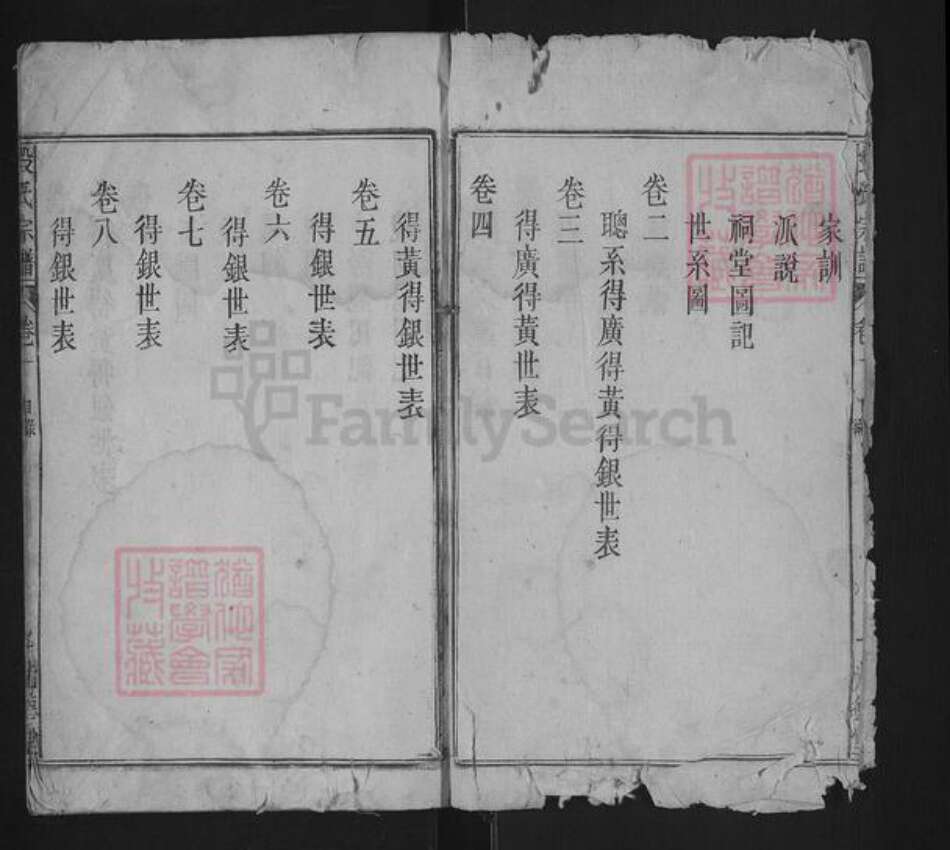 家訓
派說
祠堂圖記
世系圖
卷二
聰系得廣得黃得銀世表
卷三
得廣得黃世表
卷四
得黃得銀世表
卷五
得銀世表
卷六
得銀世表
卷七
得銀世表
卷八
得銀世表
氏宗譜
卷一
目錄
譜學會
收藏
FamilySearch